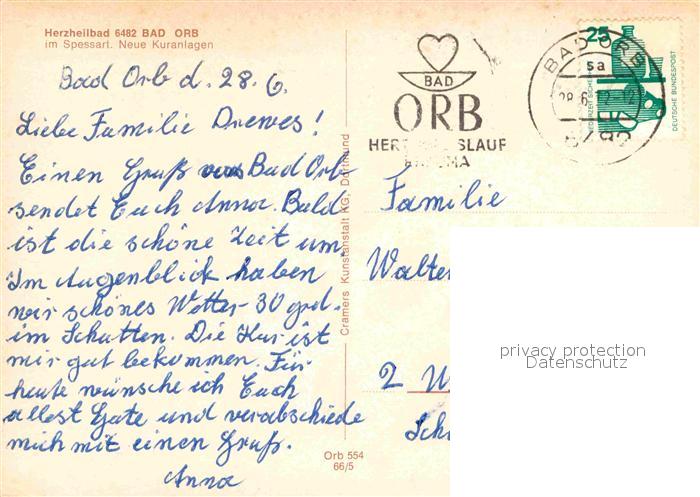 Herzheilbad 6482 BAD ORB
im Spessart. Neue Kuranlagen
Bad Orb d. 28. 6.
Liebe Familie Drewes!
Einen Gruß aus Bad Orb
sendet Euch Anna. Bald
ist die schöne Zeit um.
Im Augenblick haben
wir schönes Wetter- 30 grd.
im Schatten. Die Kur ist
mir gut bekommen. Für
heute wünsche ich Euch
alles Gute und verabschiede
mich mit einen Gruß.
Anna
Cramers Kunstanstalt KG, Dortmund
Orb 554
66/5
BAD
ORB
BAD ORB
sa
25
DEUTSCHE BUNDESPOST
Familie
Walte
2
privacy protection
Datenschutz